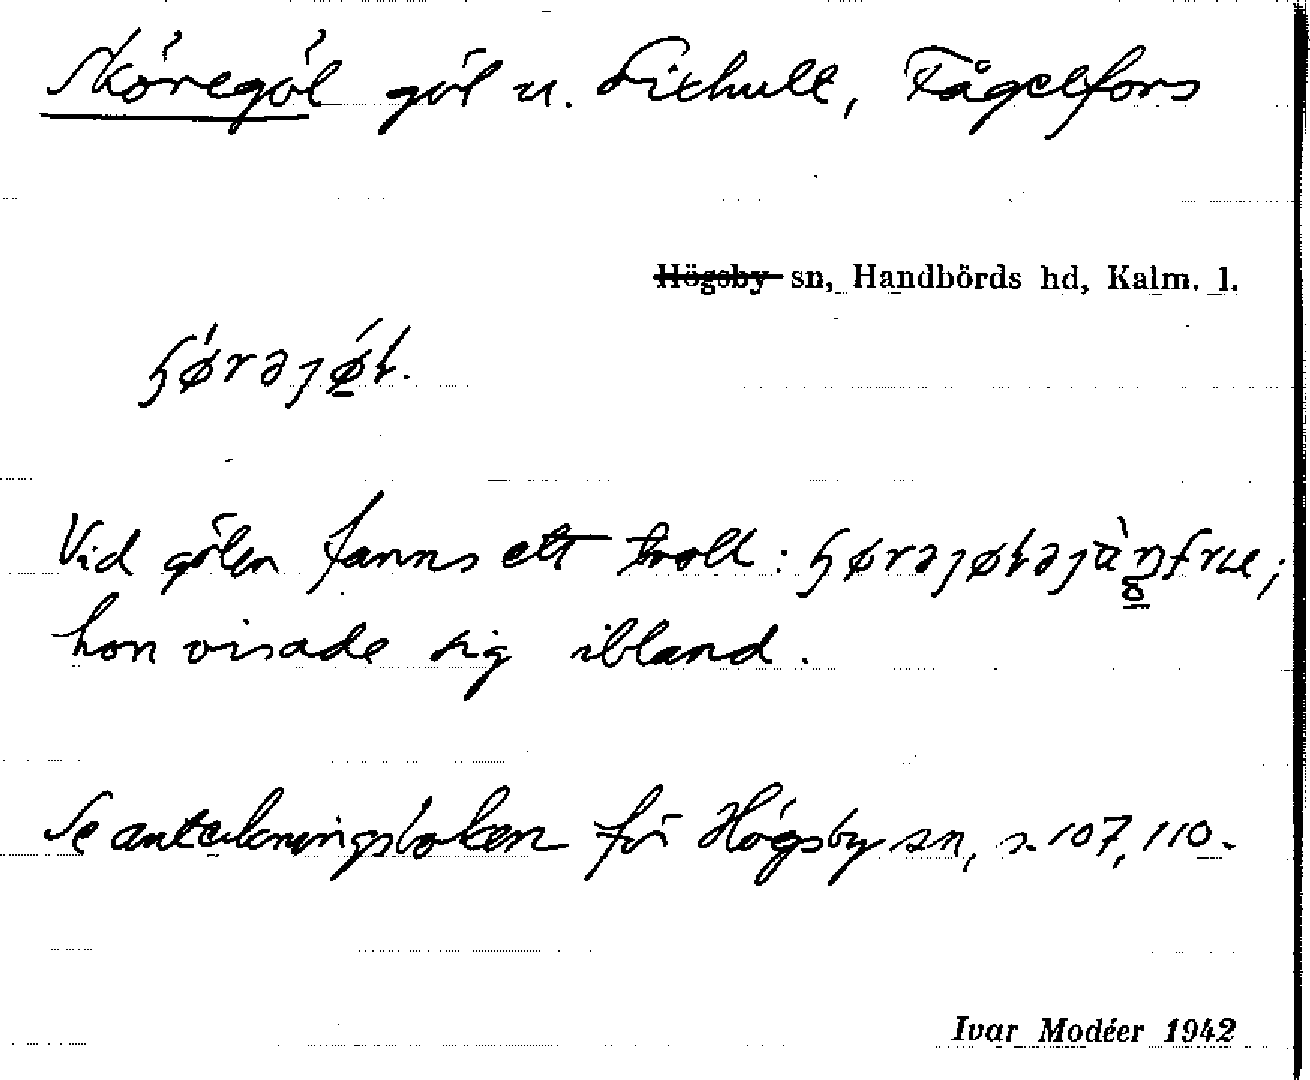 Sköregöl göl n. Lixhult, Fågelfors
Högsby sn, Handbörds hd, Kalm. l.
Vid gölen fanns ett troll:
hon visade sig ibland.
Se anteckningsboken för Högsby sn, s. 107, 110.
Ivar Modéer 1942